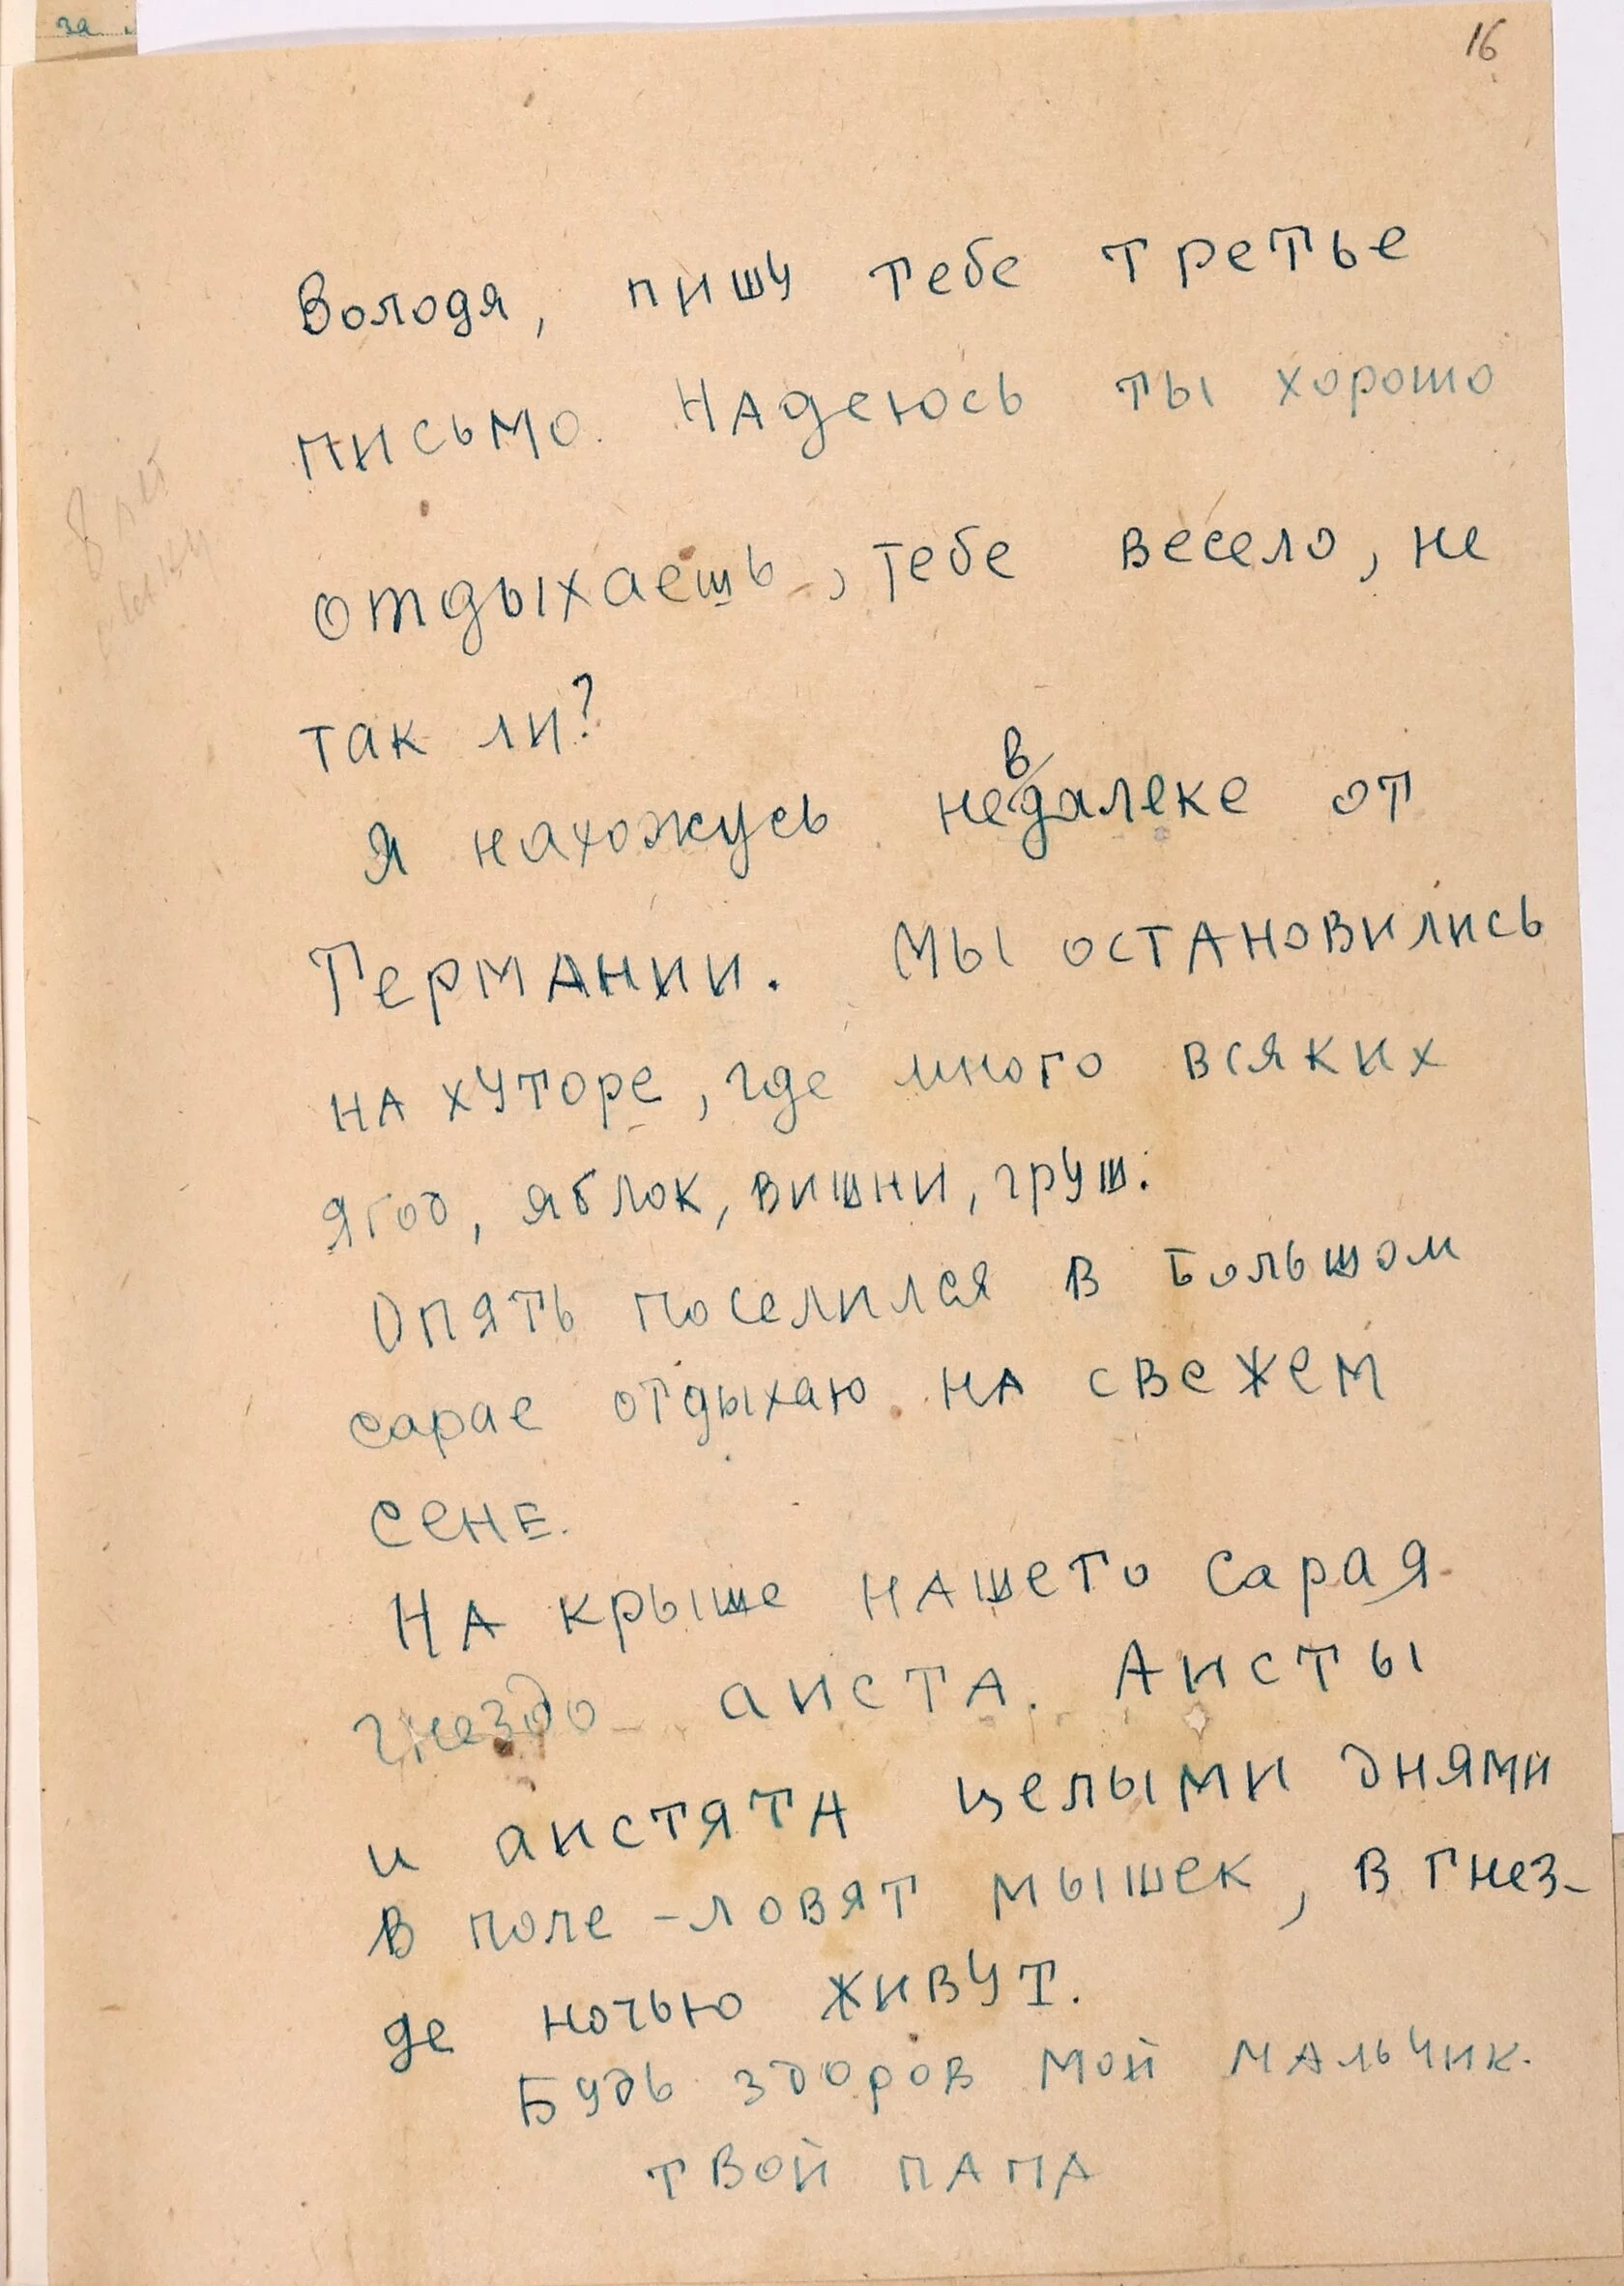 за
16
Володя, пишу тебе третье
письмо. Надеюсь ты хорошо
отдыхаешь, тебе весело, не
так ли?
Я нахожусь невдалеке от
Германии. Мы остановились
на хуторе, где много всяких
ягод, яблок, вишни, груш.
Опять поселился в большом
сарае отдыхаю на свежем
сене.
На крыше нашего сарая
гнездо аиста. Аисты
и аистята целыми днями
в поле - ловят мышек, в гнез-
де ночью живут.
Будь здоров мой мальчик.
твой папа
8 лет
сыну